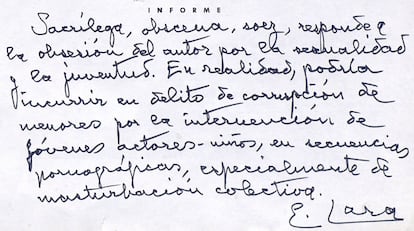 INFORME
Sacrílega, obscena, soez, responde a
la obsesión del autor por la sexualidad
y la juventud. En realidad, podría
incurrir en delito de corrupción de
menores por la intervención de
jóvenes actores-niños, en secuencias
pornográficas, especialmente de
masturbación colectiva.
E. Lara